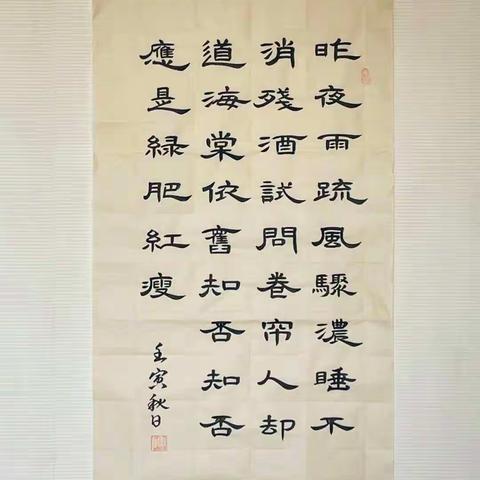 昨夜雨疏風驟濃睡不
消殘酒試問卷帘人却
道海棠依舊知否知否
應是緑肥紅瘦
壬寅秋日